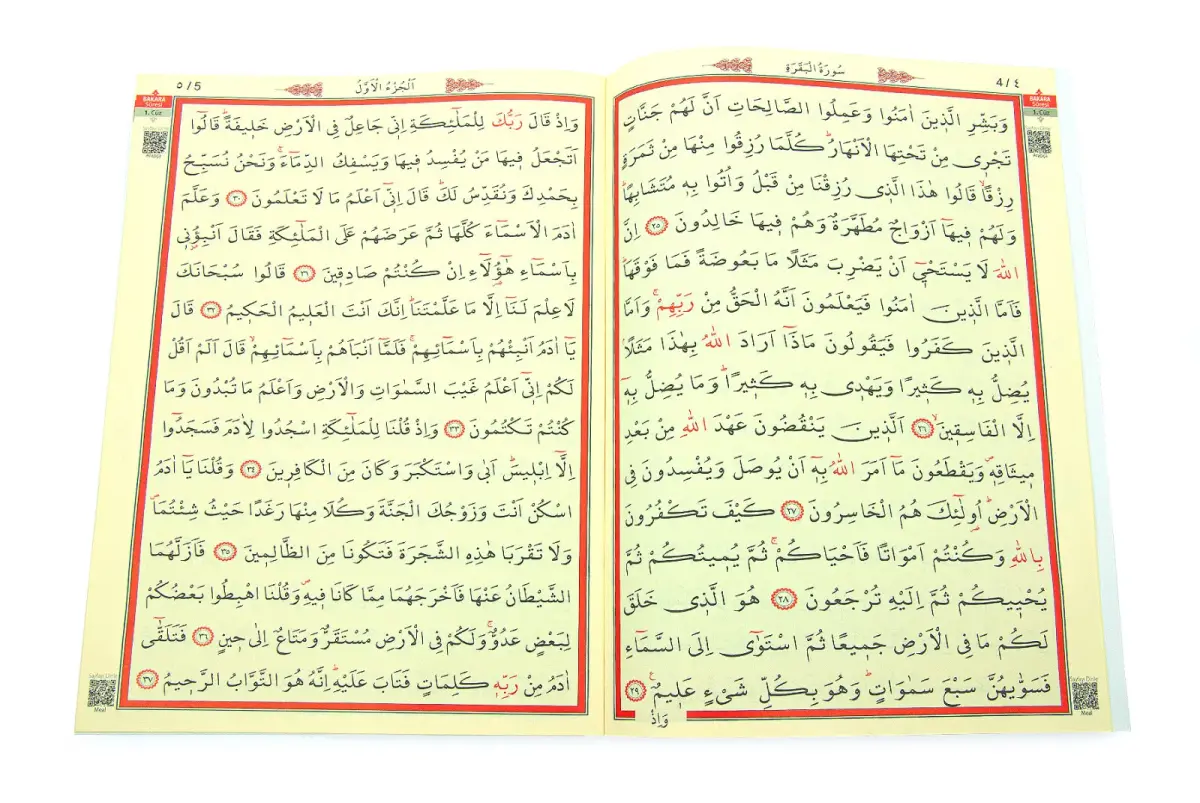 4/٤
سُورَةُ الْبَقَرَةِ
BAKARA
Sûresi
1. Cüz
وَبَشِّرِ الَّذ۪ينَ اٰمَنُوا وَعَمِلُوا الصَّالِحَاتِ اَنَّ لَهُمْ جَنَّاتٍ
تَجْر۪ي مِنْ تَحْتِهَا الْاَنْهَارُۜ كُلَّمَا رُزِقُوا مِنْهَا مِنْ ثَمَرَةٍ
رِزْقًاۙ قَالُوا هٰذَا الَّذ۪ي رُزِقْنَا مِنْ قَبْلُ وَاُتُوا بِه۪ مُتَشَابِهًاۜ
وَلَهُمْ ف۪يهَٓا اَزْوَاجٌ مُطَهَّرَةٌ وَهُمْ ف۪يهَا خَالِدُونَ ﴿٢٥﴾ اِنَّ
اللّٰهَ لَا يَسْتَحْي۪ٓ اَنْ يَضْرِبَ مَثَلًا مَا بَعُوضَةً فَمَا فَوْقَهَاۜ
فَاَمَّا الَّذ۪ينَ اٰمَنُوا فَيَعْلَمُونَ اَنَّهُ الْحَقُّ مِنْ رَبِّهِمْۚ وَاَمَّا
الَّذ۪ينَ كَفَرُوا فَيَقُولُونَ مَاذَٓا اَرَادَ اللّٰهُ بِهٰذَا مَثَلًاۢ
يُضِلُّ بِه۪ كَث۪يرًا وَيَهْد۪ي بِه۪ كَث۪يرًاۜ وَمَا يُضِلُّ بِه۪ٓ
اِلَّا الْفَاسِق۪ينَۙ ﴿٢٦﴾ اَلَّذ۪ينَ يَنْقُضُونَ عَهْدَ اللّٰهِ مِنْ بَعْدِ
م۪يثَاقِه۪ۖ وَيَقْطَعُونَ مَٓا اَمَرَ اللّٰهُ بِه۪ٓ اَنْ يُوصَلَ وَيُفْسِدُونَ فِي
الْاَرْضِۜ اُو۬لٰٓئِكَ هُمُ الْخَاسِرُونَ ﴿٢٧﴾ كَيْفَ تَكْفُرُونَ
بِاللّٰهِ وَكُنْتُمْ اَمْوَاتًا فَاَحْيَاكُمْۚ ثُمَّ يُم۪يتُكُمْ ثُمَّ
يُحْي۪يكُمْ ثُمَّ اِلَيْهِ تُرْجَعُونَ ﴿٢٨﴾ هُوَ الَّذ۪ي خَلَقَ
لَكُمْ مَا فِي الْاَرْضِ جَم۪يعًا ثُمَّ اسْتَوٰٓى اِلَى السَّمَٓاءِ
فَسَوّٰيهُنَّ سَبْعَ سَمٰوَاتٍۜ وَهُوَ بِكُلِّ شَيْءٍ عَل۪يمٌ۟ ﴿٢٩﴾
وَاِذْ
Meal
٥/5
اَلْجُزْءُ الْاَوَّلُ
BAKARA
Sûresi
1. Cüz
وَاِذْ قَالَ رَبُّكَ لِلْمَلٰٓئِكَةِ اِنّ۪ي جَاعِلٌ فِي الْاَرْضِ خَل۪يفَةًۜ قَالُٓوا
اَتَجْعَلُ ف۪يهَا مَنْ يُفْسِدُ ف۪يهَا وَيَسْفِكُ الدِّمَٓاءَۚ وَنَحْنُ نُسَبِّحُ
بِحَمْدِكَ وَنُقَدِّسُ لَكَۜ قَالَ اِنّ۪ٓي اَعْلَمُ مَا لَا تَعْلَمُونَ ﴿٣٠﴾ وَعَلَّمَ
اٰدَمَ الْاَسْمَٓاءَ كُلَّهَا ثُمَّ عَرَضَهُمْ عَلَى الْمَلٰٓئِكَةِ فَقَالَ اَنْبِؤُ۫ن۪ي
بِاَسْمَٓاءِ هٰٓؤُ۬لَٓاءِ اِنْ كُنْتُمْ صَادِق۪ينَ ﴿٣١﴾ قَالُوا سُبْحَانَكَ
لَا عِلْمَ لَنَٓا اِلَّا مَا عَلَّمْتَنَاۜ اِنَّكَ اَنْتَ الْعَل۪يمُ الْحَك۪يمُ ﴿٣٢﴾ قَالَ
يَٓا اٰدَمُ اَنْبِئْهُمْ بِاَسْمَٓائِهِمْۚ فَلَمَّٓا اَنْبَاَهُمْ بِاَسْمَٓائِهِمْۙ قَالَ اَلَمْ اَقُلْ
لَكُمْ اِنّ۪ٓي اَعْلَمُ غَيْبَ السَّمٰوَاتِ وَالْاَرْضِ وَاَعْلَمُ مَا تُبْدُونَ وَمَا
كُنْتُمْ تَكْتُمُونَ ﴿٣٣﴾ وَاِذْ قُلْنَا لِلْمَلٰٓئِكَةِ اسْجُدُوا لِاٰدَمَ فَسَجَدُٓوا
اِلَّٓا اِبْل۪يسَۜ اَبٰى وَاسْتَكْبَرَ وَكَانَ مِنَ الْكَافِر۪ينَ ﴿٣٤﴾ وَقُلْنَا يَٓا اٰدَمُ
اسْكُنْ اَنْتَ وَزَوْجُكَ الْجَنَّةَ وَكُلَا مِنْهَا رَغَدًا حَيْثُ شِئْتُمَاۖ
وَلَا تَقْرَبَا هٰذِهِ الشَّجَرَةَ فَتَكُونَا مِنَ الظَّالِم۪ينَ ﴿٣٥﴾ فَاَزَلَّهُمَا
الشَّيْطَانُ عَنْهَا فَاَخْرَجَهُمَا مِمَّا كَانَا ف۪يهِۖ وَقُلْنَا اهْبِطُوا بَعْضُكُمْ
لِبَعْضٍ عَدُوٌّۚ وَلَكُمْ فِي الْاَرْضِ مُسْتَقَرٌّ وَمَتَاعٌ اِلٰى ح۪ينٍ ﴿٣٦﴾ فَتَلَقّٰٓى
اٰدَمُ مِنْ رَبِّه۪ كَلِمَاتٍ فَتَابَ عَلَيْهِۜ اِنَّهُ هُوَ التَّوَّابُ الرَّح۪يمُ ﴿٣٧﴾
Meal